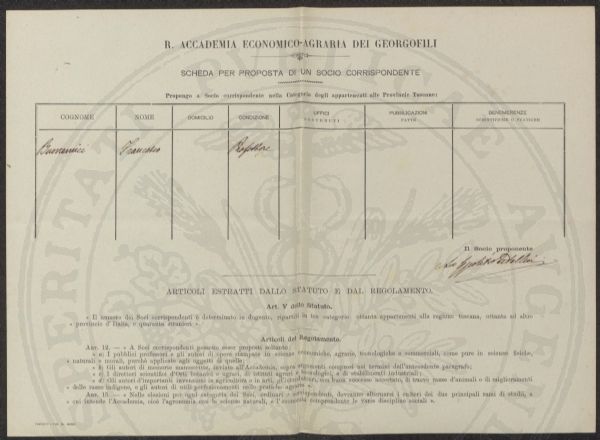 R. ACCADEMIA ECONOMICO-AGRARIA DEI GEORGOFILI
SCHEDA PER PROPOSTA DI UN SOCIO CORRISPONDENTE
Propongo a Socio corrispondente nella Categoria degli appartenenti alle Provincie Toscane:
COGNOME NOME DOMICILIO CONDIZIONE UFFICI SOSTENUTI PUBBLICAZIONI FATTE BENEMERENZE SCIENTIFICHE O PRATICHE
Francesco
Il Socio proponente
ARTICOLI ESTRATTI DALLO STATUTO E DAL REGOLAMENTO.
Art. V dello Statuto.
« Il numero dei Soci corrispondenti è determinato in dugento, ripartiti in tre categorie: ottanta appartenenti alla regione toscana, ottanta ad altre
« provincie d'Italia, e quaranta stranieri ».
Articoli del Regolamento.
ART. 12. — « A Soci corrispondenti possono esser proposti soltanto:
« a: I pubblici professori e gli autori di opere stampate in scienze economiche, agrarie, tecnologiche e commerciali, come pure in scienze fisiche,
« naturali e morali, perchè applicate agli oggetti di quelle;
« b: Gli autori di memorie manoscritte, inviate all'Accademia, sopra argomenti compresi nei termini dell'antecedente paragrafo;
« c: I direttori scientifici d'Orti botanici e agrari, di istituti agrari e tecnologici, e di stabilimenti industriali;
« d: Gli autori d'importanti invenzioni in agricoltura o in arti, gl'introduttori, con buon successo accertato, di nuove razze d'animali o di miglioramenti
« delle razze indigene, e gli autori di utili perfezionamenti nelle pratiche agrarie ».
ART. 15. — « Nelle elezioni per ogni categoria dei Soci, ordinari e corrispondenti, dovranno alternarsi i cultori dei due principali rami di studi, a
« cui intende l'Accademia, cioè l'agronomia con le scienze naturali, e l'economia comprendente le varie discipline sociali ».